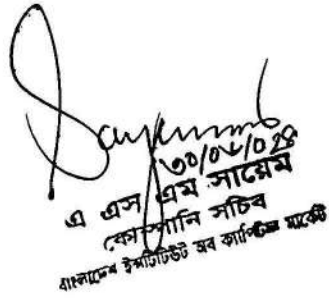 Sayemml
৩০/০৮/০২৪
এ এস এম সায়েম
কোম্পানি সচিব
বাংলাদেশ ইন্সটিটিউট অব ক্যাপিটাল মার্কেট